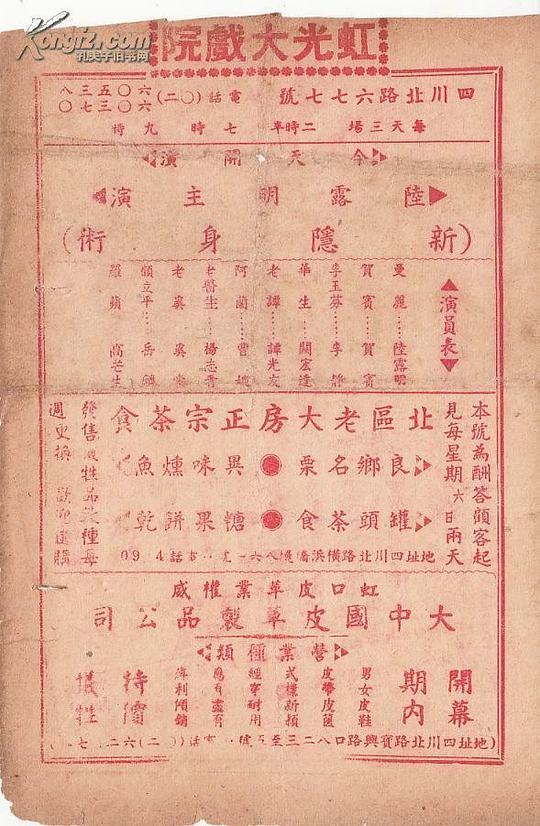 Kongfz.com
孔夫子旧书网
虹光大戲院
四川北路六七七號 電話(〇二)六〇五三八 六〇三七〇
每天三場 二時半 七時 九時
今天開演
陸露明主演
(新隱身術)
演員表
曼麗……陸露明
賀賓……賀賓
李玉芬……李靜
華生……關宏達
老譚……譚光友
阿蘭……曹
老醫生……楊志
老奚……奚
顧立平……岳
羅蘋 高芒生
本號為酬答顧客起
見每星期六日兩天
北區老大房正宗茶食
良鄉名栗 異味燻魚
罐頭茶食 糖果餅乾
發售犧牲品數種每
週更換 歡迎選購
地址四川北路橫浜橋
虹口皮革業權威
大中國皮革製品公司
營業種類
開幕
期內
男女皮鞋
皮帶皮篋
式樣新穎
經穿耐用
應有盡有
薄利傾銷
特價
犧牲
(地址四川北路寶興路口八二三至五號